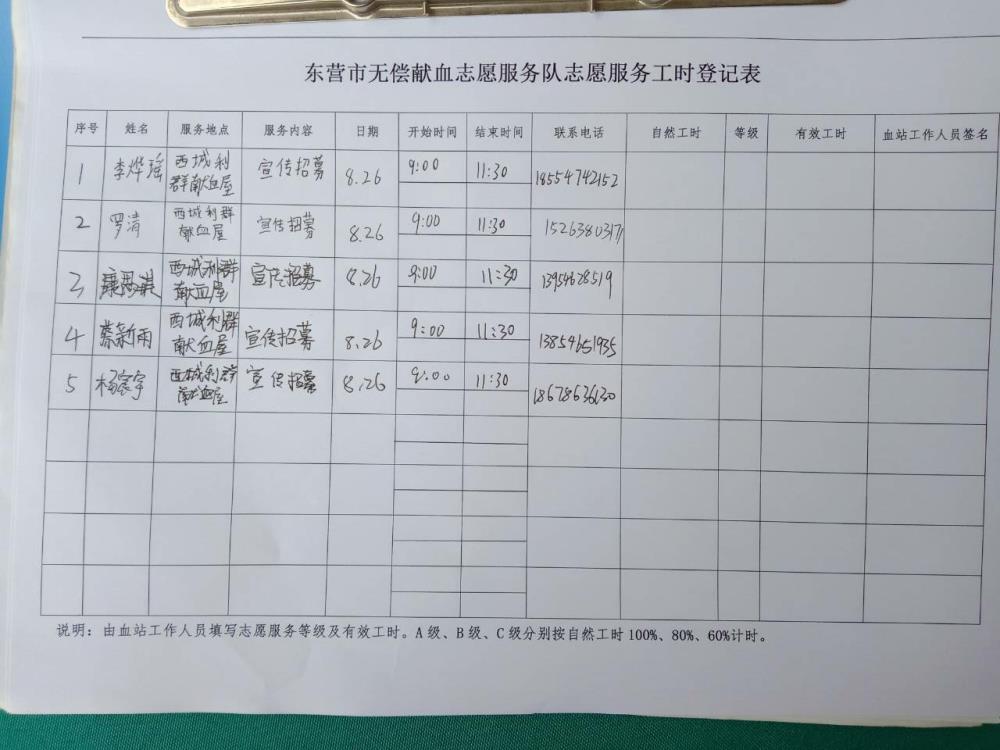 东营市无偿献血志愿服务队志愿服务工时登记表
序号 姓名 服务地点 服务内容 日期 开始时间 结束时间 联系电话 自然工时 等级 有效工时 血站工作人员签名
1 李烨瑶 西城利群献血屋 宣传招募 8.26 9:00 11:30 18554742152
2 罗清 西城利群献血屋 宣传招募 8.26 9:00 11:30 15263803171
3 西城利群献血屋 宣传招募 8.26 9:00 11:30 13954628519
4 蔡新雨 西城利群献血屋 宣传招募 8.26 9:00 11:30 13854651935
5 杨寰宇 西城利群献血屋 宣传招募 8.26 9:00 11:30 18678636130
说明：由血站工作人员填写志愿服务等级及有效工时。A级、B级、C级分别按自然工时100%、80%、60%计时。